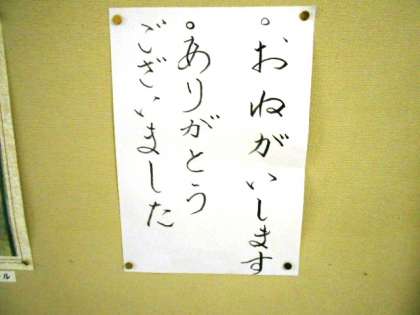 。おねがいします
。ありがとう
ございました
ル